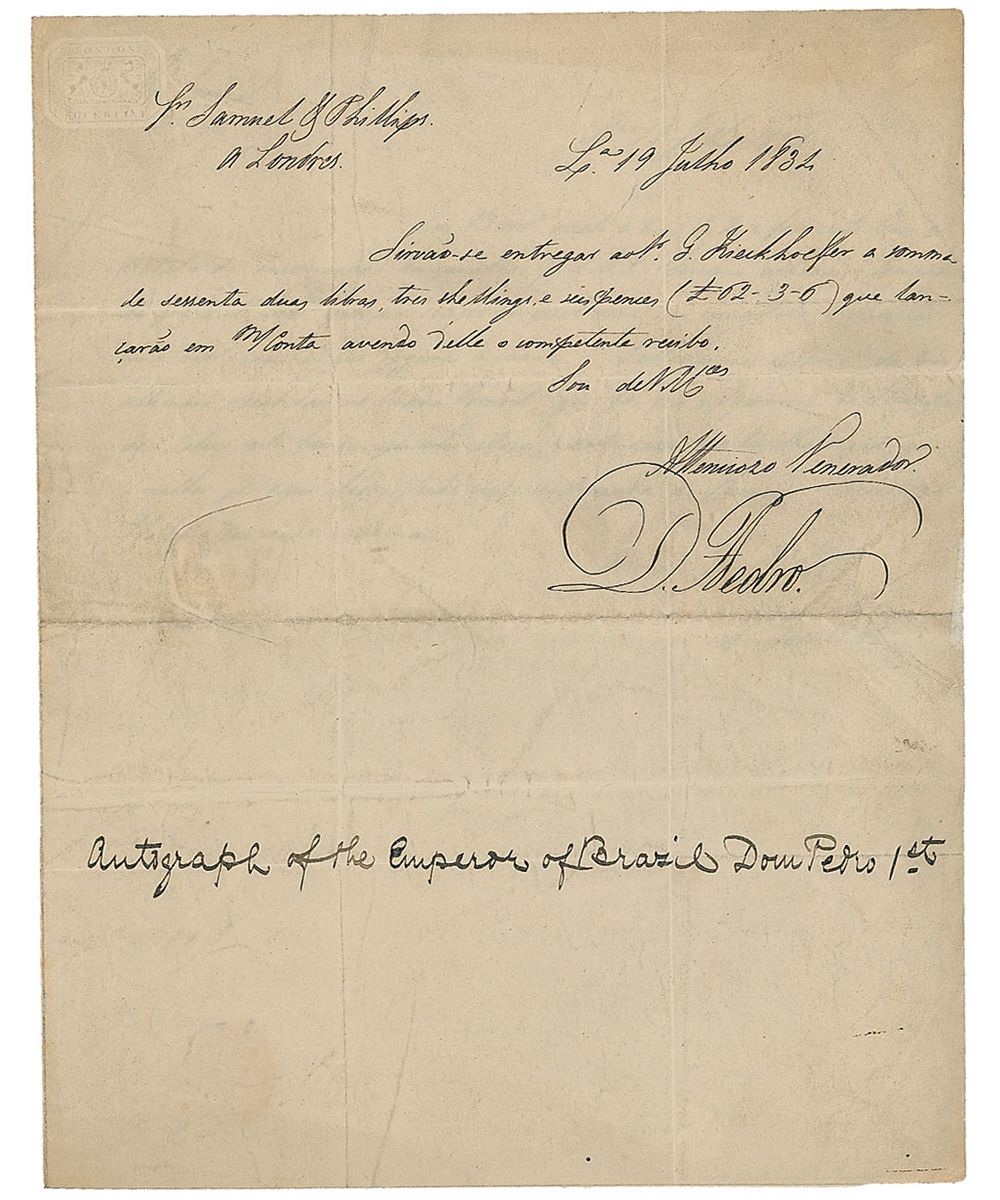 LONDON
SUPERFINE
Srs. Samuel & Phillips.
a Londres.
Lxa. 19 Julho 1834
Sirvão-se entregar ao Sr. G. Kieckhoeffer a somma
de sessenta duas libras, tres shellings, e seis pences (£ 62-3-6) que lan-
çarão em m/Conta avendo d'elle o competente recibo.
Sou de V. Mces
Attencioso Venerador.
D. Pedro.
Autograph of the Emperor of Brazil Dom Pedro 1st